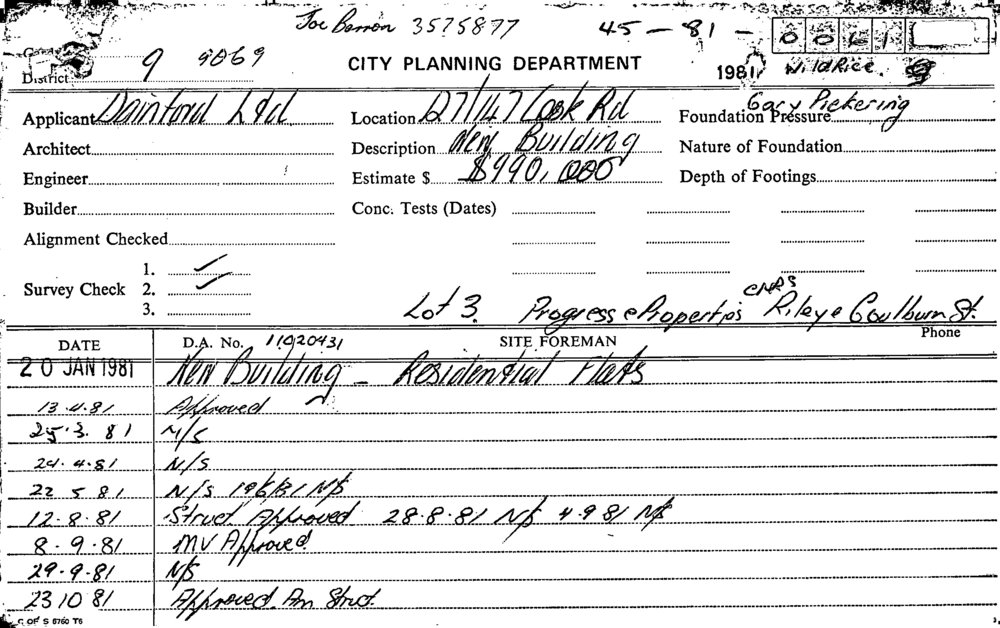 Joe Barron 3575877 45 - 81 - 0 0 4 1
Card
District 9 9069 CITY PLANNING DEPARTMENT 1981 Wild Rice
Applicant Dainford Ltd Location 27/147 Cook Rd Gary Pickering
Foundation Pressure
Architect Description New Building Nature of Foundation
Engineer Estimate $ $990,000 Depth of Footings
Builder Conc. Tests (Dates)
Alignment Checked
1. ✓
Survey Check 2. ✓
3. Lot 3. Progress Properties CNRS Riley & Goulburn St.
DATE D.A. No. 11020431 SITE FOREMAN Phone
20 JAN 1981 New Building - Residential Flats
13.4.81 Approved
25.3.81 N/S
24.4.81 N/S
22 5 81 N/S 196/81 N/S
12.8.81 Struct. Approved 28.8.81 N/S 4.9 81 N/S
8.9.81 MV Approved
29.9.81 N/S
23 10 81 Approved Am Struct.
C OF S 6760 T6